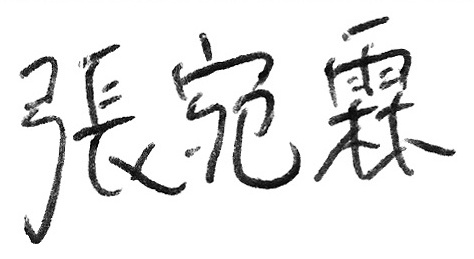 張宛霖